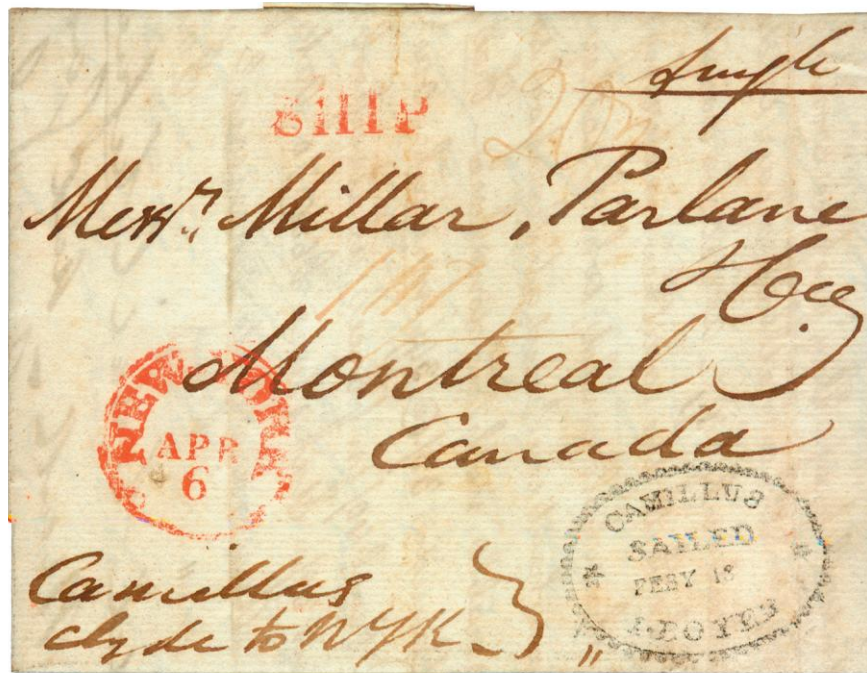 Single
SHIP
Messrs. Millar, Parlane
& Co.
Montreal
Canada
NEW-YORK
APR
6
CAMILLUS
SAILED
FEBY 13
Camillus
Clyde to NYK